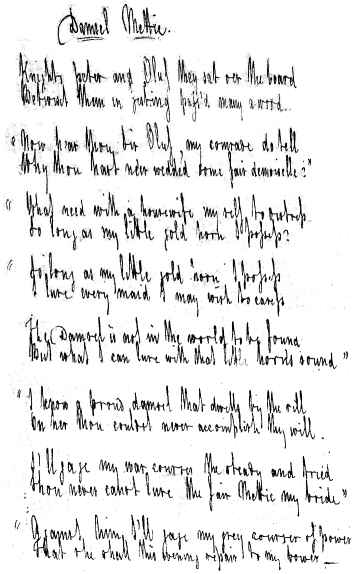 Damsel Mettie.
Knights Peter and Oluf they sat over the board
Betwixt them in jesting pass'd many a word.
"Now hear thou, Sir Oluf, my comrade do tell
Why thou hast ne'er wedded some fair demoiselle?"
"What need with a housewife my self to
So long as my little gold horn I possess?
"So long as my little gold horn I possess
I lure every maid I may wish to caress
The Damsel is not in the world to be found
But what I can lure with that little horn's sound"
"I know a proud damsel that dwells by the rill
On her thou couldst never accomplish thy will.
I'll gage my war courser the steady and tried
Thou never canst lure the fair Mettie my bride"
"Against him I'll gage my grey courser of power
That she shall this evening repair to my bower.—